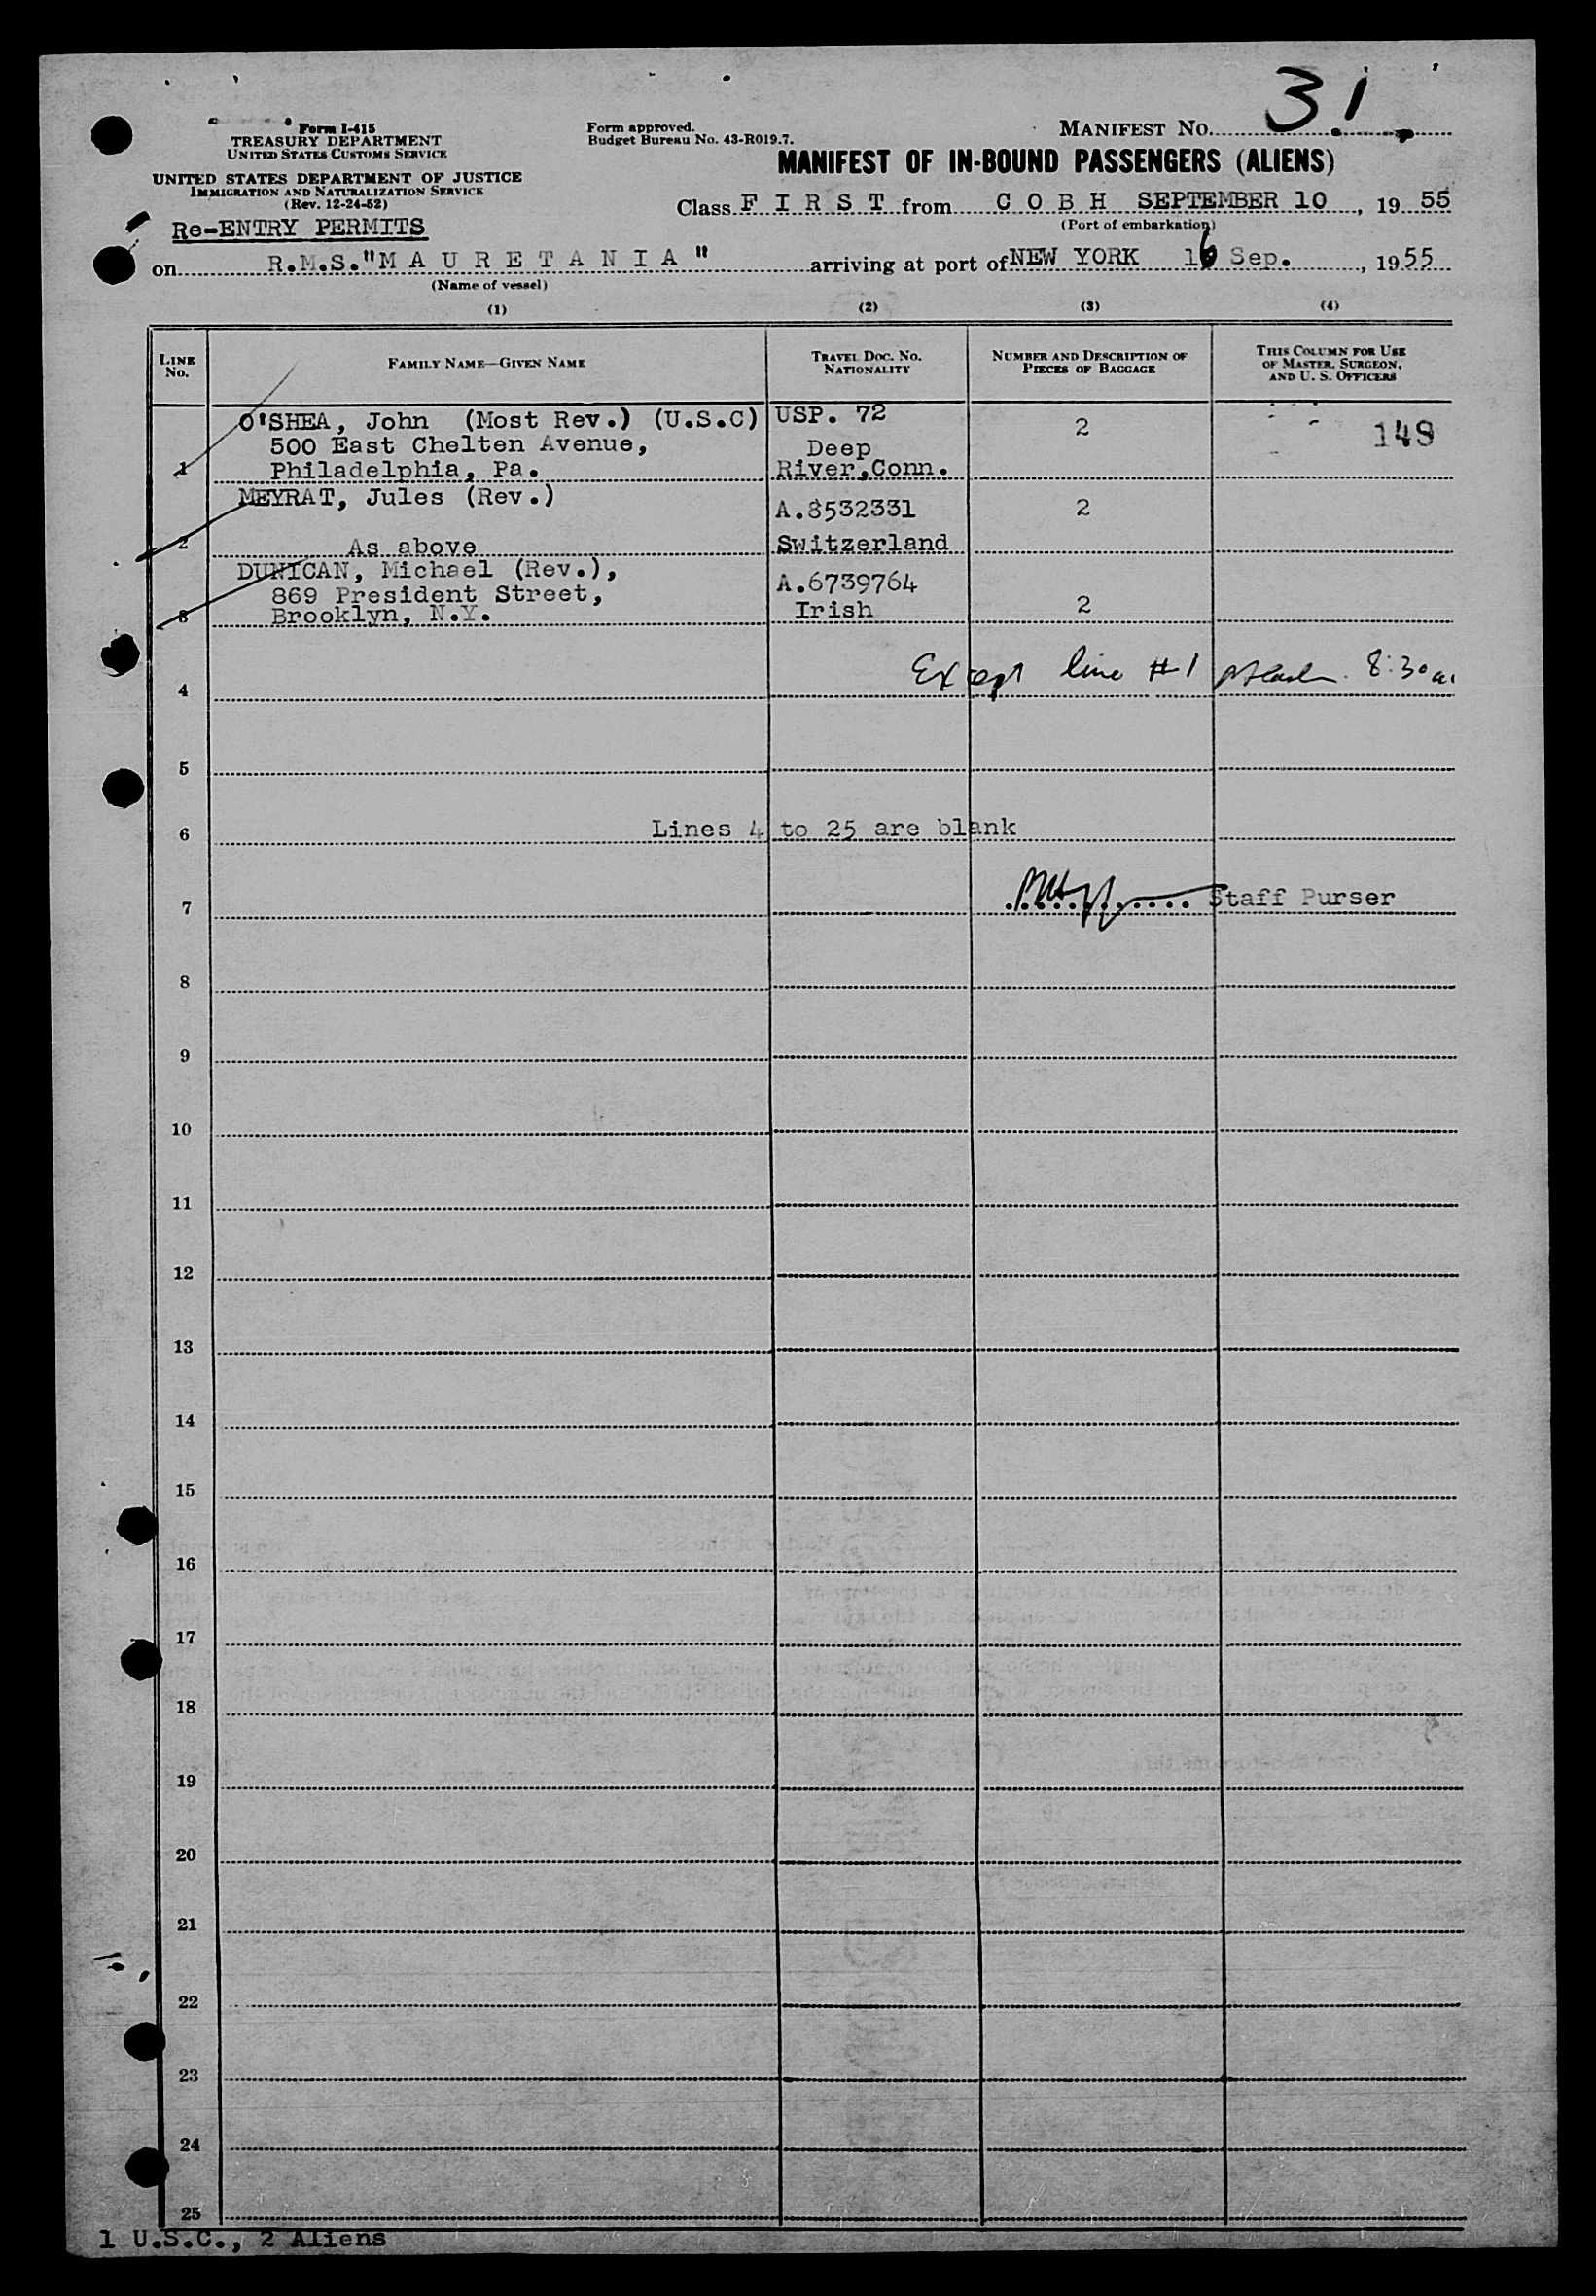 31
Form I-415
TREASURY DEPARTMENT
UNITED STATES CUSTOMS SERVICE
Form approved.
Budget Bureau No. 43-R019.7.
MANIFEST NO.
MANIFEST OF IN-BOUND PASSENGERS (ALIENS)
UNITED STATES DEPARTMENT OF JUSTICE
IMMIGRATION AND NATURALIZATION SERVICE
(Rev. 12-24-52)
Class F I R S T from C O B H SEPTEMBER 10, 1955
(Port of embarkation)
Re-ENTRY PERMITS
on R.M.S."M A U R E T A N I A " arriving at port of NEW YORK 16 Sep., 1955
(Name of vessel)
(1) (2) (3) (4)
LINE No.
FAMILY NAME—GIVEN NAME
TRAVEL DOC. NO. NATIONALITY
NUMBER AND DESCRIPTION OF PIECES OF BAGGAGE
THIS COLUMN FOR USE OF MASTER, SURGEON, AND U. S. OFFICERS
O'SHEA, John (Most Rev.) (U.S.C) USP. 72 2 149
500 East Chelten Avenue, Deep
1 Philadelphia, Pa. River,Conn.
MEYRAT, Jules (Rev.) A.8532331 2
2 As above Switzerland
DUNICAN, Michael (Rev.), A.6739764
869 President Street, Irish 2
3 Brooklyn, N.Y.
Except line #1 8:30
4
5
6 Lines 4 to 25 are blank
7 Staff Purser
8
9
10
11
12
13
14
15
16
17
18
19
20
21
22
23
24
25
1 U.S.C., 2 Aliens